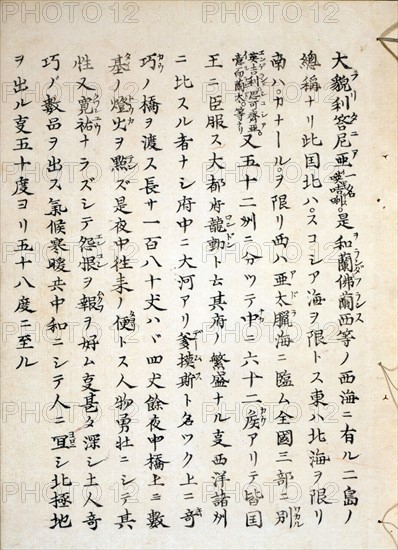 大貌利答尼亜一名 是和蘭佛蘭西等ノ西海ニ有ル二島ノ
總稱ナリ此国北ハスコシア海ヲ限トス東ハ北海ヲ限リ
南ハカナールヲ限リ西ハ亜太臘海ニ臨ム全國三部ニ別
又五十二州ニ分ツテ中ニ六十二侯アリテ皆国
王ニ臣服ス大都府龍動ト云其府ノ繁盛ナル叓西洋諸州
ニ比スル者ナシ府中ニ大河アリ 斯ト名ツク上ニ奇
巧ノ橋ヲ渡ス長サ一百八十丈ハヾ四丈餘夜中橋上ニ数
基ノ燈火ヲ點ズ是夜中徃来ノ便トス人物勇壮ニシテ其
性又寛裕ナラズシテ怨恨ヲ報ヲ好ム叓甚タ深シ土人奇
巧ノ数品ヲ出ス氣候寒暖共中和ニシテ人ニ冝シ北極地
ヲ出ル叓五十度ヨリ五十八度ニ至ル
PHOTO12